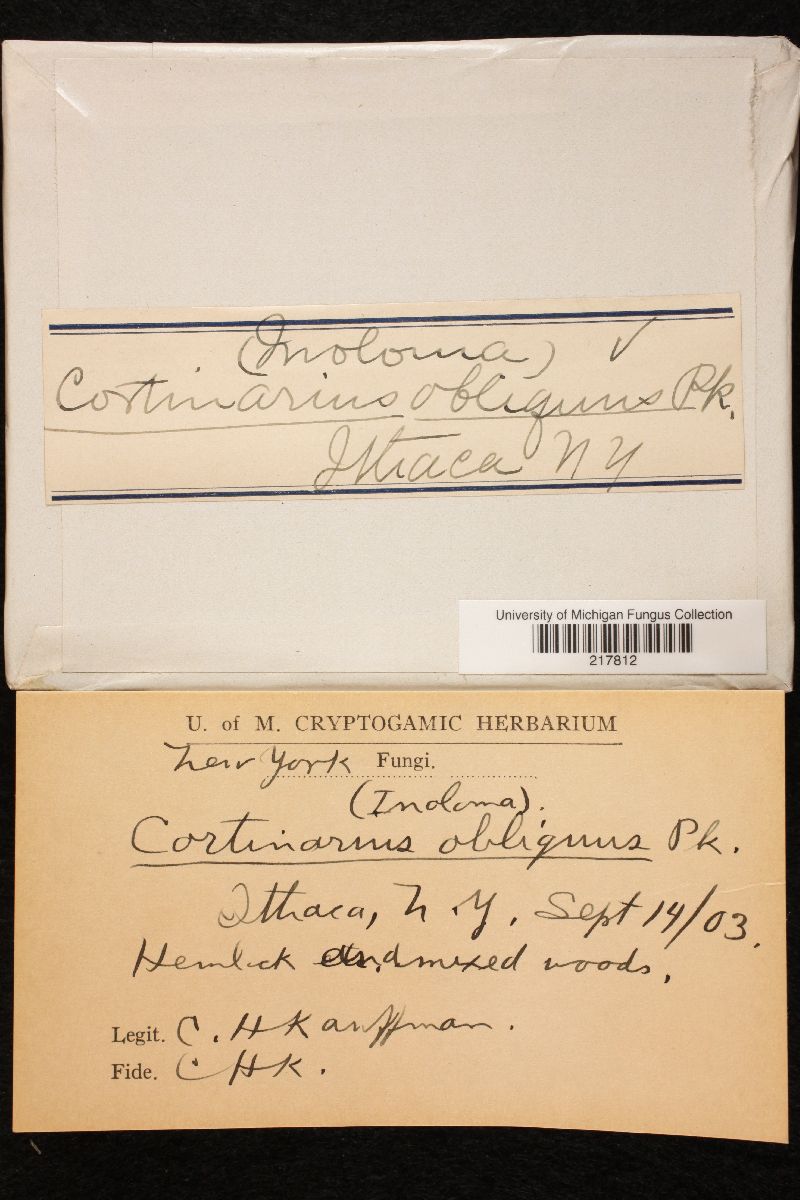 (Inoloma) ✓
Cortinarius obliquus Pk.
Ithaca N Y
University of Michigan Fungus Collection
217812
U. of M. CRYPTOGAMIC HERBARIUM
New York Fungi.
(Inoloma).
Cortinarius obliquus Pk.
Ithaca, N.Y., Sept 14/03.
Hemlock and mixed woods.
Legit. C. H Kauffman.
Fide. C H K.